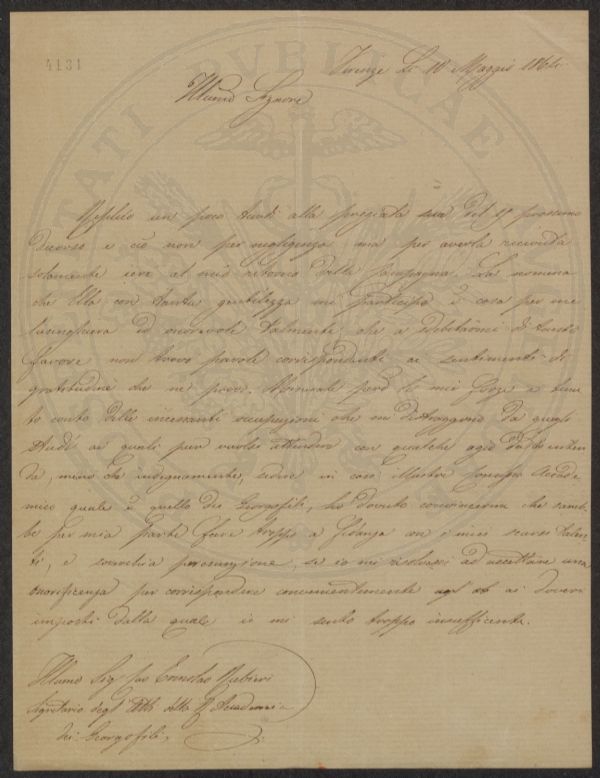 4131
Firenze Li 10 Maggio
Illmo Signore
Replico un poco tardi alla pregiata sua del 1º prossimo
decorso e ciò non per negligenza, ma per averla ricevuta
solamente ieri al mio ritorno dalla Campagna. La nomina
che Ella con tanta gentilezza mi partecipò è cosa per me
lusinghiera ed onorevole talmente, che a sdebitarmi di tanto
favore non trovo parole corrispondenti ai sentimenti di
gratitudine che ne provo. Misurate però le mie forze e tenu
to conto delle incessanti occupazioni che mi distraggono da quegli
studi ai quali pur vuolsi attendere con qualche agio
da, meno che indegnamente, sedere in così illustre Consesso Accade
mico quale è quello dei Georgofili, ho dovuto convincermi che sareb
be per mia parte fare troppo a fidanza con i miei scarsi talen
ti, e soverchia presunzione, se io mi risolvessi ad accettare una
onorificenza per corrispondere convenientemente ai doveri
imposti dalla quale io mi sento troppo insufficiente.
Illmo Sig. Ermolao Rubieri
Segretario degl' Atti della R. Accademia
dei Georgofili.